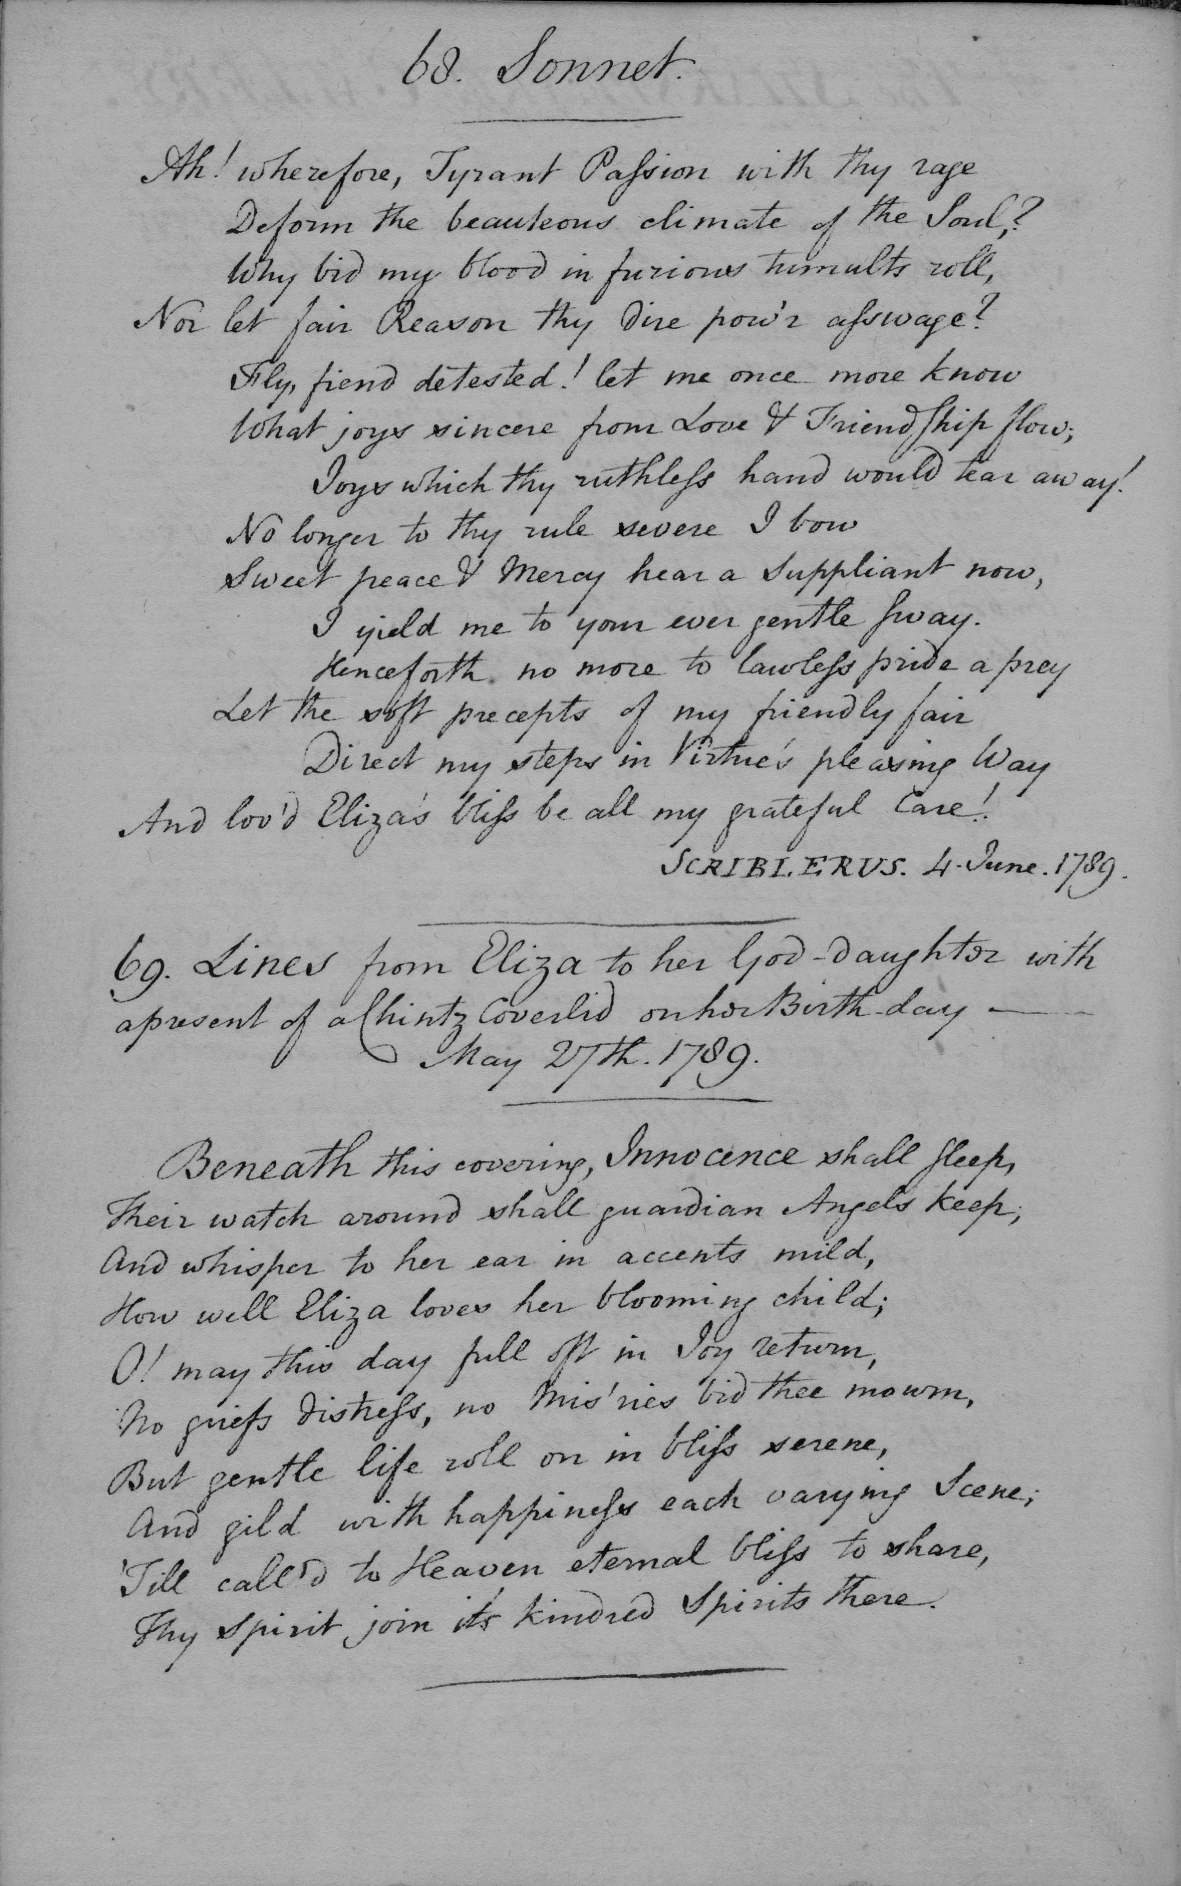 68. Sonnet.
Ah! wherefore, Tyrant Paſsion with thy rage
Deform the beauteous climate of the Soul,?
Why bid my blood in furious tumults roll,
Nor let fair Reason thy dire pow'r aſswage?
Fly, fiend detested! let me once more know
What joys sincere from Love & Friendſhip flow;
Joys which thy ruthleſs hand would tear away!
No longer to thy rule severe I bow
Sweet peace & Mercy hear a Suppliant now,
I yield me to your ever gentle ſway.
Henceforth no more to lawleſs pride a prey
Let the soft precepts of my friendly fair
Direct my steps in Virtue's pleasing Way
And lov'd Eliza's bliſs be all my grateful Care!
SCRIBLERUS. 4. June. 1789.
69. Lines from Eliza to her God-daughter with
a present of a Chintz Coverlid on her Birth-day —
May 27th. 1789.
Beneath this covering, Innocence shall ſleep,
Their watch around shall guardian Angels keep;
And whisper to her ear in accents mild,
How well Eliza loves her blooming child;
O! may this day full oft in Joy return,
No griefs distreſs, no Mis'ries bid thee mourn,
But gentle life roll on in bliſs serene,
And gild with happineſs each varying Scene;
'Till call'd to Heaven eternal bliſs to share,
Thy spirit join it's kindred Spirits there.